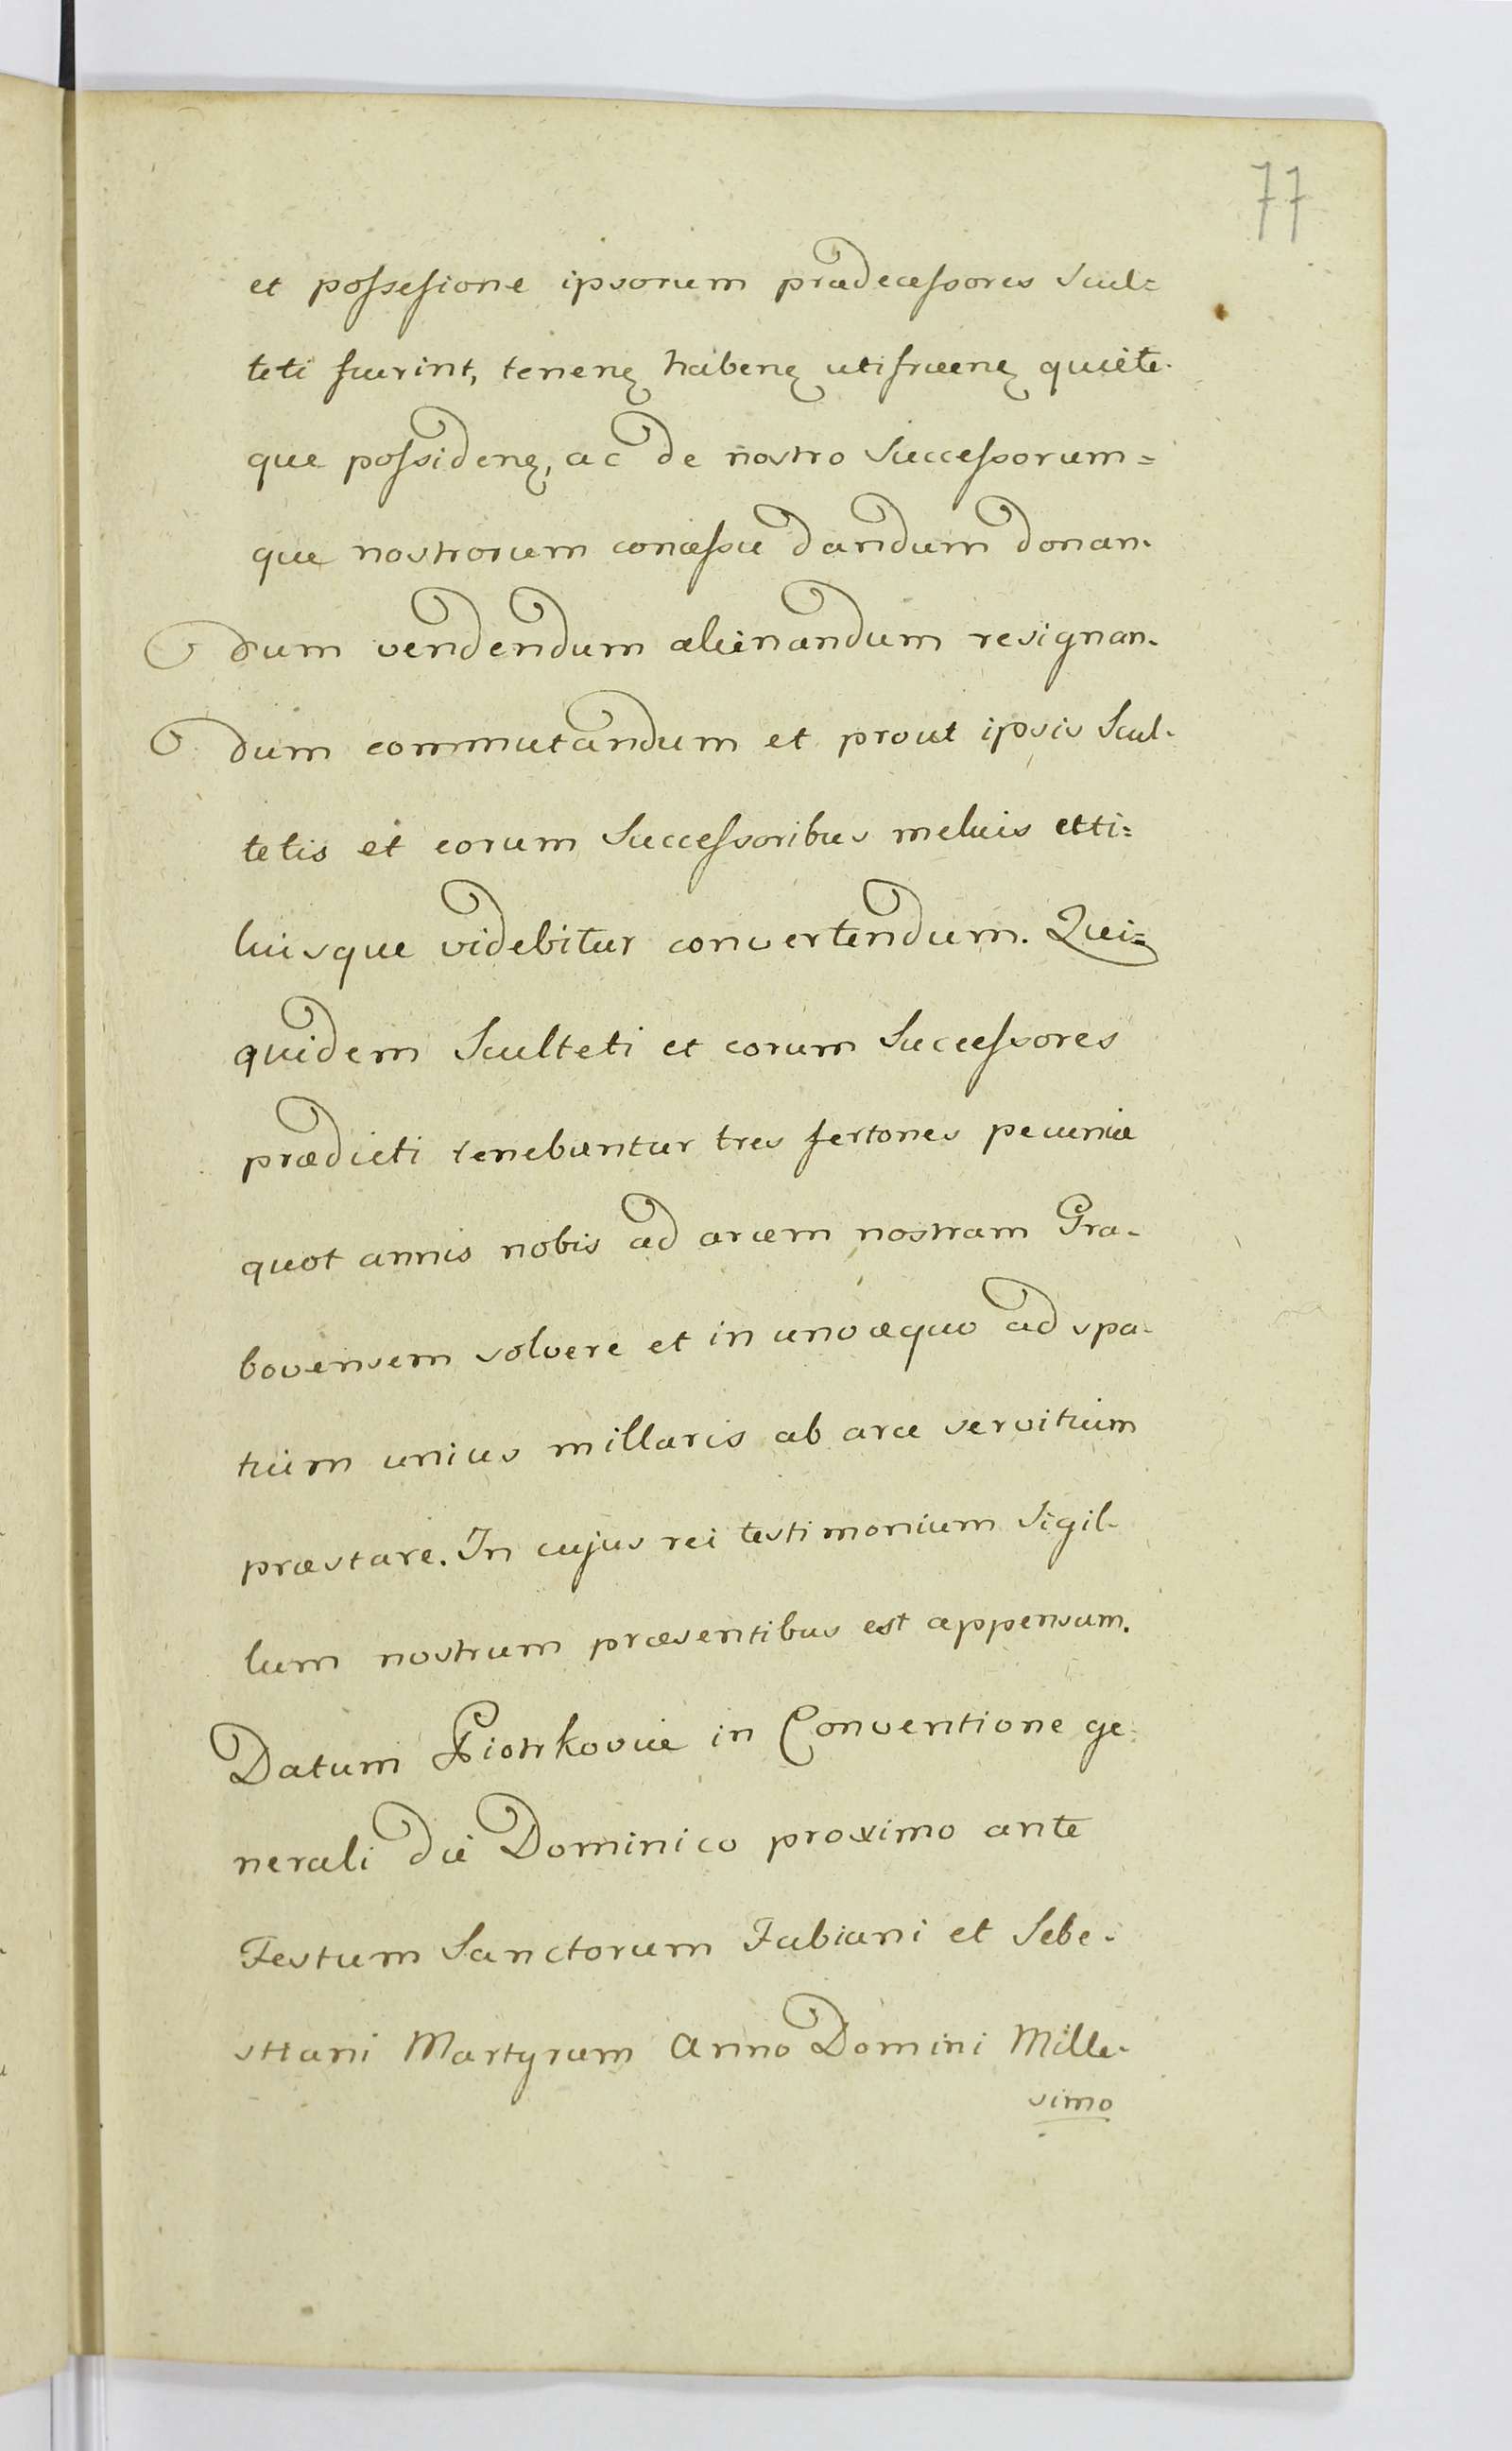 77
et possesione ipsorum prædecessores Scul=
teti fuerint, tenenȩ habenȩ utifruenȩ quiete-
que possidenȩ, ac de nostro Successorum=
que nostrorum concessu dandum donan-
dum vendendum alienandum resignan-
dum commutandum et prout ipsis Scul-
tetis et eorum Successoribus melius etti=
liusque videbitur convertendum. Qui=
quidem Sculteti et eorum Successores
prædicti tenebuntur tres fertones pecuniæ
quot annis nobis ad arcem nostram Gra-
bovensem solvere et in uno equo ad spa-
tium unius millaris ab arce servitium
præstare. In cujus rei testimonium Sigil-
lum nostrum præsentibus est appensum.
Datum Piotrkoviæ in Conventione ge-
nerali die Dominico proximo ante
Festum Sanctorum Fabiani et Sebe-
stiani Martyrum Anno Domini Mille-
simo